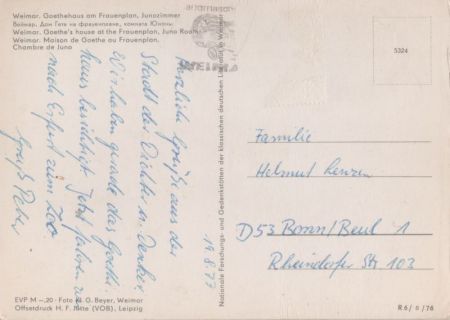 Weimar. Goethehaus am Frauenplan, Junozimmer
Веймар. Дом Гете на Фрауенплане, комната Юноны
Weimar. Goethe's house at the Frauenplan, Juno Room
Weimar. Maison de Goethe au Frauenplan,
Chambre de Juno
WEIMAR
5324
Herzliche Grüße aus der
Stadt der Dichter u. Denker.
Wir haben gerade das Goethe-
haus besichtigt. Jetzt fahren wir
nach Erfurt zum Zoo
Gruß Peter
19.8.77
Nationale Forschungs- und Gedenkstätten der klassischen deutschen Literatur in Weimar
Familie
Helmut
D53 Bonn/Beuel 1
Rheindorfer Str 103
EVP M –,20 · Foto G. Beyer, Weimar
Offsetdruck H. F. Jütte (VOB), Leipzig
R 6/ 8 /76